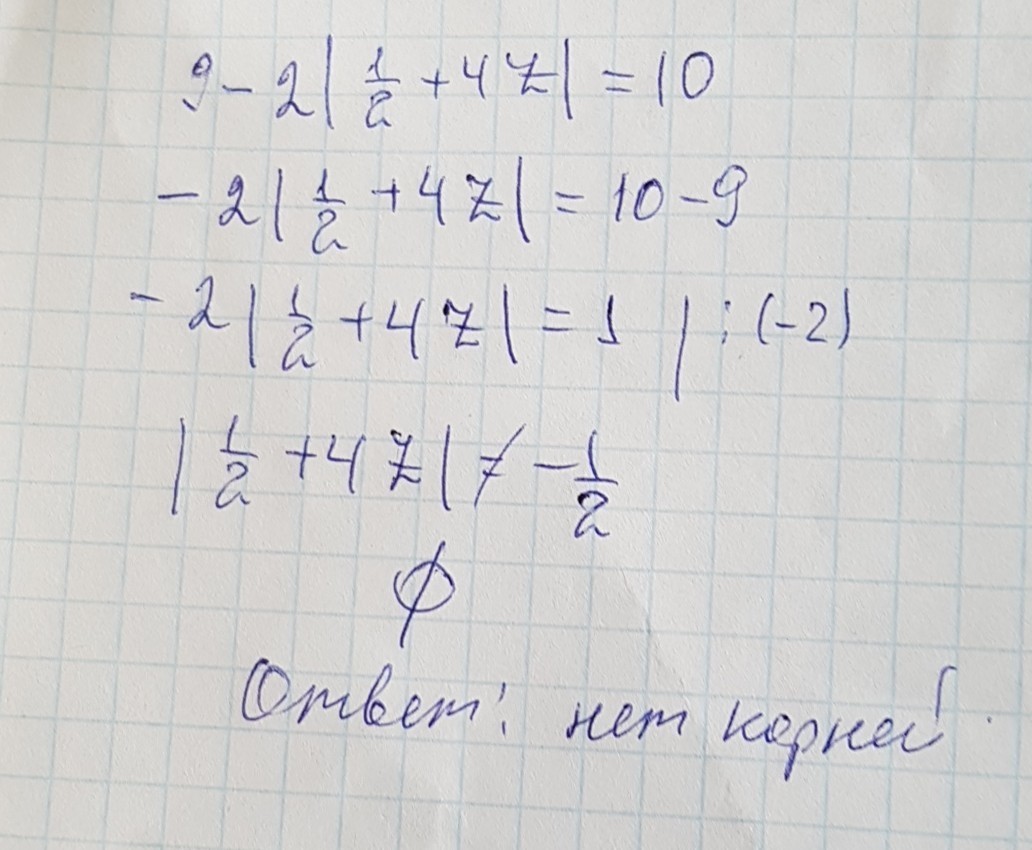 9 - 2|1/2 + 4z| = 10
- 2|1/2 + 4z| = 10 - 9
- 2|1/2 + 4z| = 1 | : (-2)
|1/2 + 4z| ≠ -1/2
∅
Ответ: нет корней.